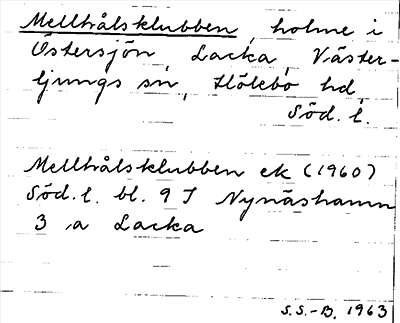 Mellhålsklubben, holme i
Östersjön, Lacka, Väster-
ljungs sn, Hölebo hd,
Söd. l.
Mellhålsklubben ek (1960)
Söd. l. bl. 9 J Nynäshamn
3 a Lacka
S.S.-B. 1963